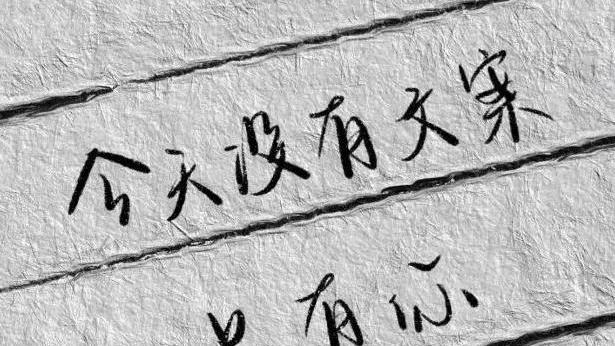 今天没有文案
只有你